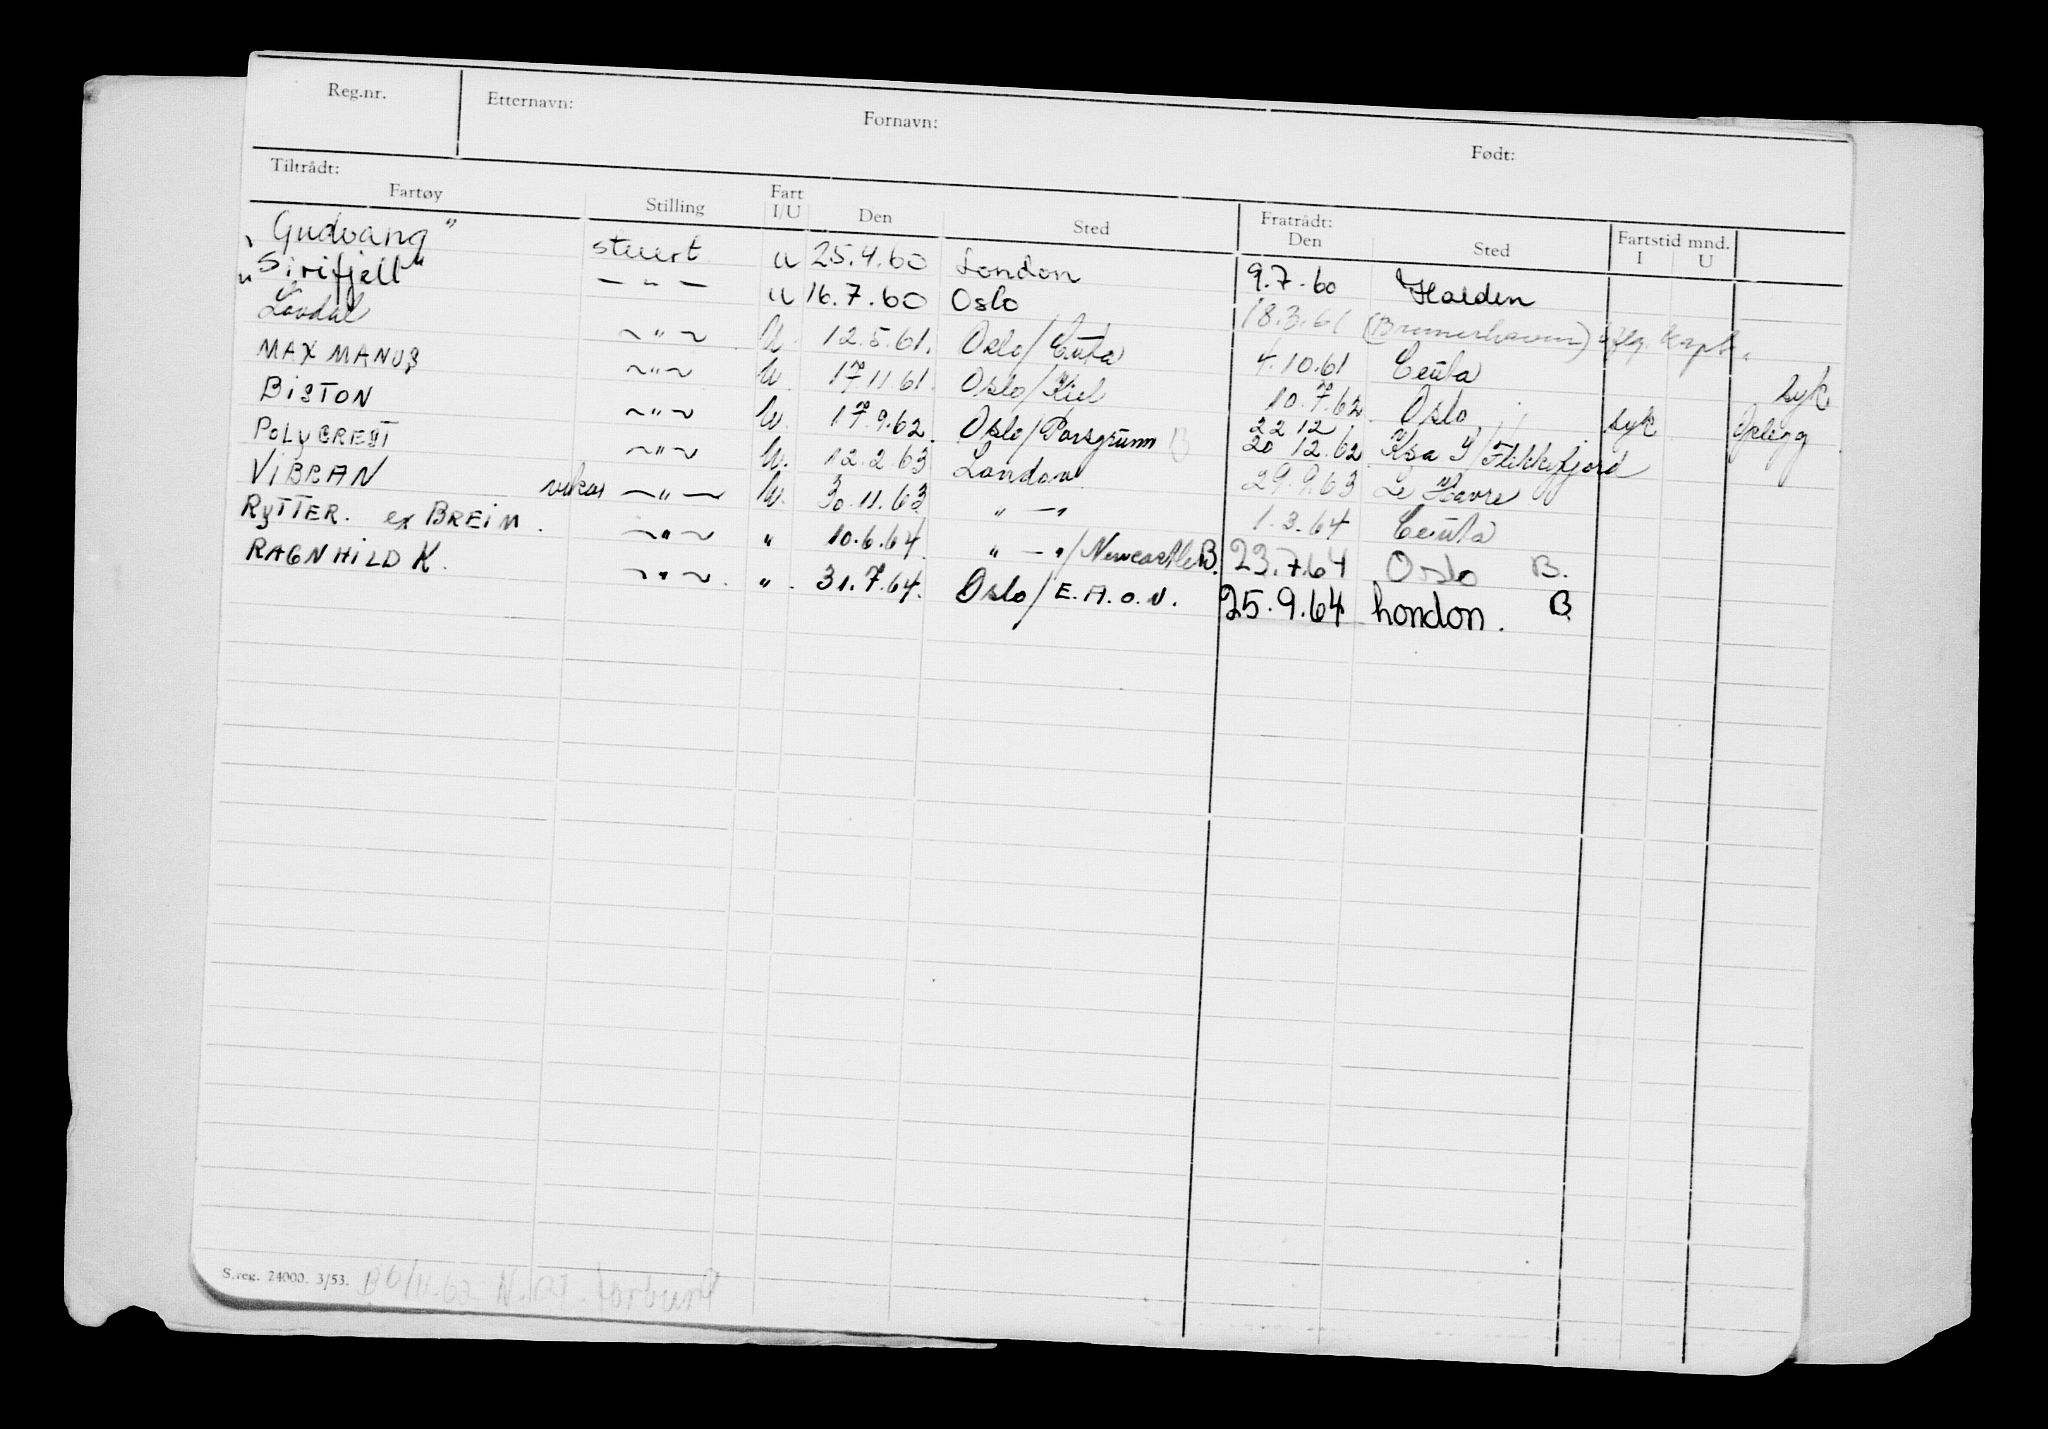 Reg.nr. Etternavn: Fornavn: Født:
Tiltrådt: Fratrådt:
Fartøy Stilling Fart I/U Den Sted Den Sted Fartstid mnd. I U
"Gudvang" stuert u 25.4.60 London 9.7.60 Halden
"Sirifjell" — " — u 16.7.60 Oslo 18.3.61 (Bremerhaven) iflg. kapt.
Lovdal ~ " ~ U. 12.5.61. Oslo/Ceuta 4.10.61 Ceuta syk
MAX MANUS ~ " ~ U. 17.11.61. Oslo/Kiel 10.7.62 Oslo syk Oplegg
BISTON ~ " ~ U. 17.9.62. Oslo/Porsgrunn B 22 12
20 12.62 Ksa S/Flekkefjord
POLYCREST ~ " ~ U. 12.2.63 London 29.9.63 Le Havre
VIBRAN vikar — " — U. 30.11.63 " — " 1.3.64 Ceuta
RYTTER. ex BREIM. ~ " ~ " 10.6.64. " — "/Newcastle B. 23.7.64 Oslo B.
RAGNHILD K. ~ " ~. ". 31.7.64. Oslo/E.A.O.N. 25.9.64 London. B.
S.reg. 24000. 3/53. B6/11.62 forbund